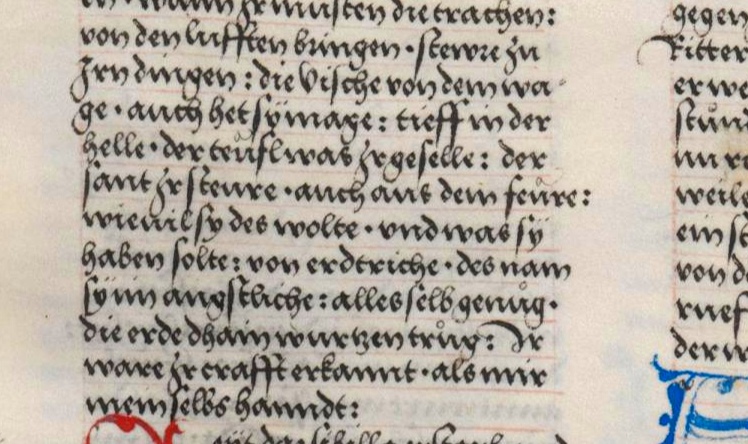 en · wann Ir müsten die trachen:
von den lufften bringen · stewre zu
Irn dingen: die Vische von dem wa-
ge · auch het sy mage: tieff in der
helle · der teufl was Ir geselle: der
sant Ir steure · auch aus dem feure:
wieuil sy des wolte · vnd was sy
haben solte: von erdtriche · des nam
sy im angstliche: alles selb genůg ·
die erde dhain wurtzen trůg: Ir
ware Ir crafft erkannt · als mir
mein selbs hanndt:
gegen
Ritter
er we
stund
nu
weile
ein st
von d
ruef
der w